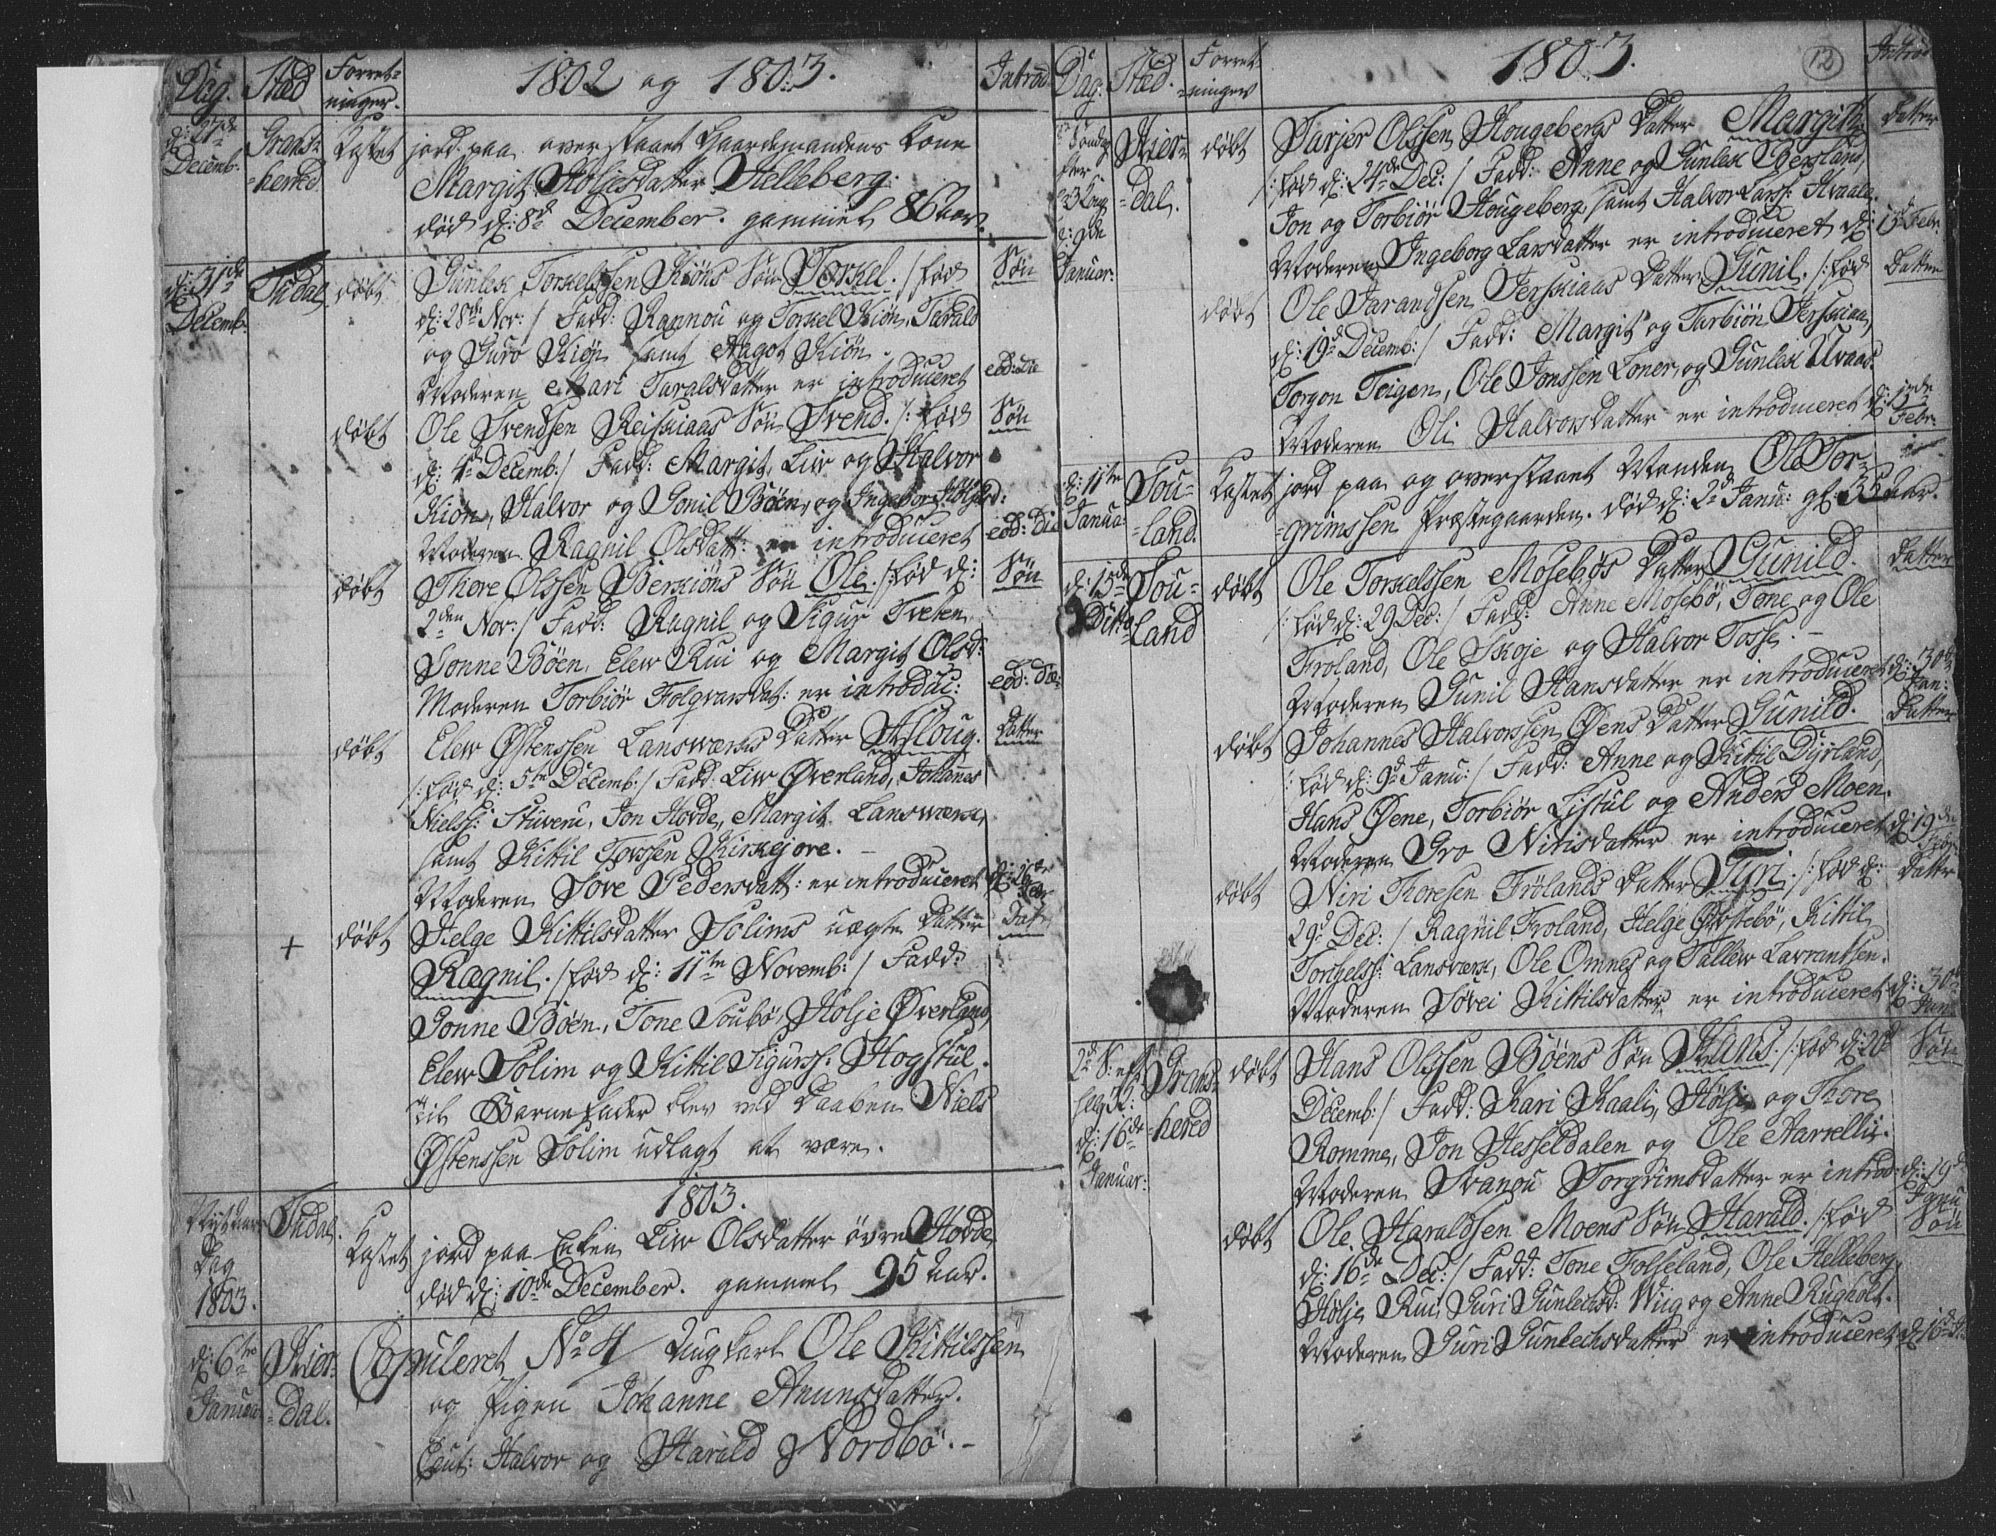 Dag. Sted Forret-
ninger. 1802 og 1803. Introd
d: 27de Decemb. Grans-
-herred
Kastet jord paa overstaaet Gaardemandens Kone
Margit Høljesdatter Helleberg.
død d: 8de December. gammel 86 aar.
d: 31de Decemb. Tudal
døbt Gunlek Torkelssen Kiøns Søn Torkel. /: fød Søn
d: 28de Nov: / Fadd: Rannou og Torkel Kiøn, Tarald
og Guro Kiøn samt Aagot Kiøn.
Moderen Mari Taraldsdatter er introduceret eod: Die
døbt Ole Svendsen Reiskiaas Søn Svend. /: fød Søn
d: 4de Decemb: / Fadd: Margit, Liv og Halvor
Kion, Halvor og Gonil Bøen, og Ingebor
Moderen Ragnil Olsdatt: er introduceret eod: Die
døbt Thore Olssen Berkiøns Søn Ole. /: fød d: Søn
2den Nov: / Fadd: Ragnil og Sigur Tveten,
Gonne Bøen, Elev Rui og Margit Olsd:
Moderen Torbiør Folqvarsdat: er introduc: eod: Die
døbt Elev Østenssen Landsværks Datter Asloug. Datter
/: fød d: 5te Decemb: / Fadd: Liv Øverland, Johannes
Nielss: Stuveru, Jon Hovde, Margit Landsværk,
samt Kittil Torssen Kirkejore.
Moderen Tove Pedersdatt: er introduceret d: 16de
+ døbt Helge Kittilsdatter Solims uægte Datter Dat
Ragnil. /: fød d: 11te Novemb: / Fadd:
Gonne Bøen, Tone Soubø, Holje Øverland,
Elev Solim og Kittil Sigurss: Hogstul.
Til Barnefader blev ved Daaben Niels
Østenssen Solim udlagt at være.
1803.
Nytaars
Dag
1803. Tudal. Kastet jord paa Enken Liv Olsdatter øvre Hovde
død d: 10de December. gammel 95 aar.
d: 6te Januar Hier-
-dal. Copuleret No 4 / Ungkarl Ole Kittilssen
og Pigen Johanne Amunsdatter.
Caut: Halvor og Harald Nordbø.
Dag. Sted. Forret-
-ninger 1803. 12 Introd
Søndag
efter
Kong
d: 9de
Januar: Hier-
-dal. døbt Tarjer Olssen Hougebergs Datter Margit Datter
/: fød d: 24de Dec: / Fadd: Anne og Gunlek Bersland,
Jon og Torbiør Hougeberg, samt Halvor Larss: Kvaale.
Moderen Ingeborg Larsdatter er introduceret d: Febr.
døbt Ole Tarandsen Jerskiaas Datter Gunil. /: fød Datter
d: 19de Decemb: / Fadd: Margit og Tarbiøn Jerskiaas,
Torgon Teigen, Ole Jonssen Loner, og Gunlek Uvaas.
Moderen Oli Halvorsdatter er introduceret d: Febr.
d: 11te
Janua: Sou-
land. Kastet jord paa og overstaaet Manden Ole Tor-
-grimssen Præstegaarden. død d: 2de Janu: gl: 35 aar.
d: 15de
Ditto Sou-
land døbt Ole Torkelssen Mosebøs Datter Gunild. Datter
/: fød d: 29 Dec: / Fadd: Anne Mosebø, Tone og Ole
Froland, Ole Skoje og Halvor Tosse.
Moderen Gunil Hansdatter er introduceret d: 30te Jan:
døbt Johannes Halvorssen Øens Datter Gunild. Datter
/: fød d: 9de Janu: / Fadd: Anne og Kittil Dyrland,
Hans Øene, Torbiør Fistul og Anders Moen.
Moderen Gro Nirisdatter er introduceret d: 19de
døbt Niri Thoresen Frølands Datter Turi. /: fød d: Datter
29de Dec: / Ragnil Froland, Helge Mosebø, Kittil
Torkelss: Landsværk, Ole Omnes og Tallew Lavrantsen.
Moderen Søvei Kittilsdatter er introduceret d: 30te Jan
2de S: eft
helg 3K:
d: 16de
Januar: Grans-
-herred døbt Hans Olssen Bøens Søn Hans. /: fød d: 20de Søn
Decemb: / Fadd: Kari Kaali, Hølje og Thore
Romme, Jon Hesseldalen og Ole Harrellii.
Moderen Svanou Torgrimsdatter er introd: d: 19de Janu
døbt Ole Haraldsen Moens Søn Harald. /: fød Søn
d: 16de Dec: / Fadd: Tone Folseland, Ole Helleberg,
Holje Rui, Guri Gunlechsd: Wiig og Anne Rugholt.
Moderen Guri Gunlechsdatter er introduceret d: 16de